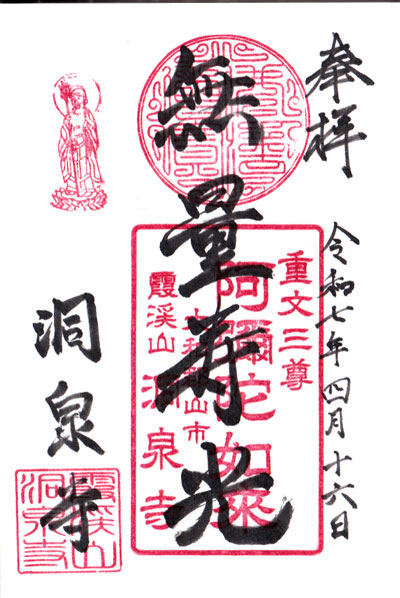 奉拝
令和七年四月十六日
無量寿光
重文三尊
阿彌陀如来
大和郡山市
霞溪山 洞泉寺
洞泉寺
霞溪山
洞泉寺